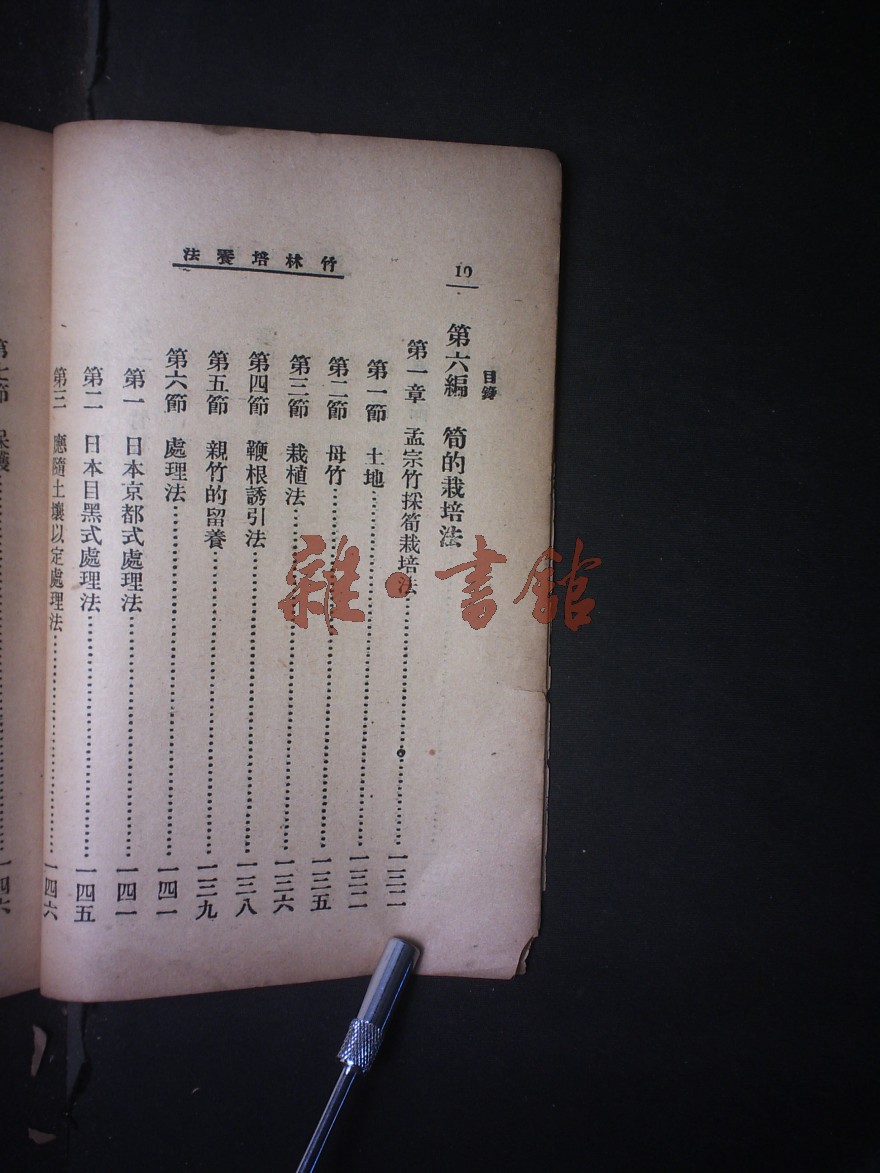 竹林培養法
10
目錄
第六編 筍的栽培法
第一章 孟宗竹採筍栽培法……一三二
第一節 土地……一三二
第二節 母竹……一三五
第三節 栽植法……一三六
第四節 鞭根誘引法……一三八
第五節 親竹的留養……一三九
第六節 處理法……一四一
第一 日本京都式處理法……一四一
第二 日本目黑式處理法……一四五
第三 應隨土壤以定處理法……一四六
第七節 保護……一四六
雜·書館